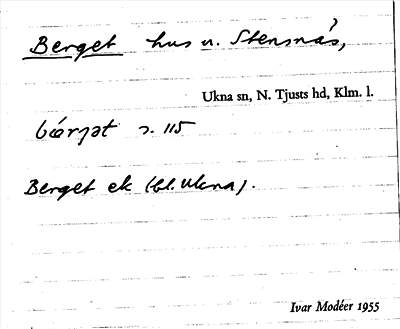 Berget hus u. Stensnäs,
Ukna sn, N. Tjusts hd, Klm. l.
bärjət s. 115
Berget ek (bl. Ukna).
Ivar Modéer 1955